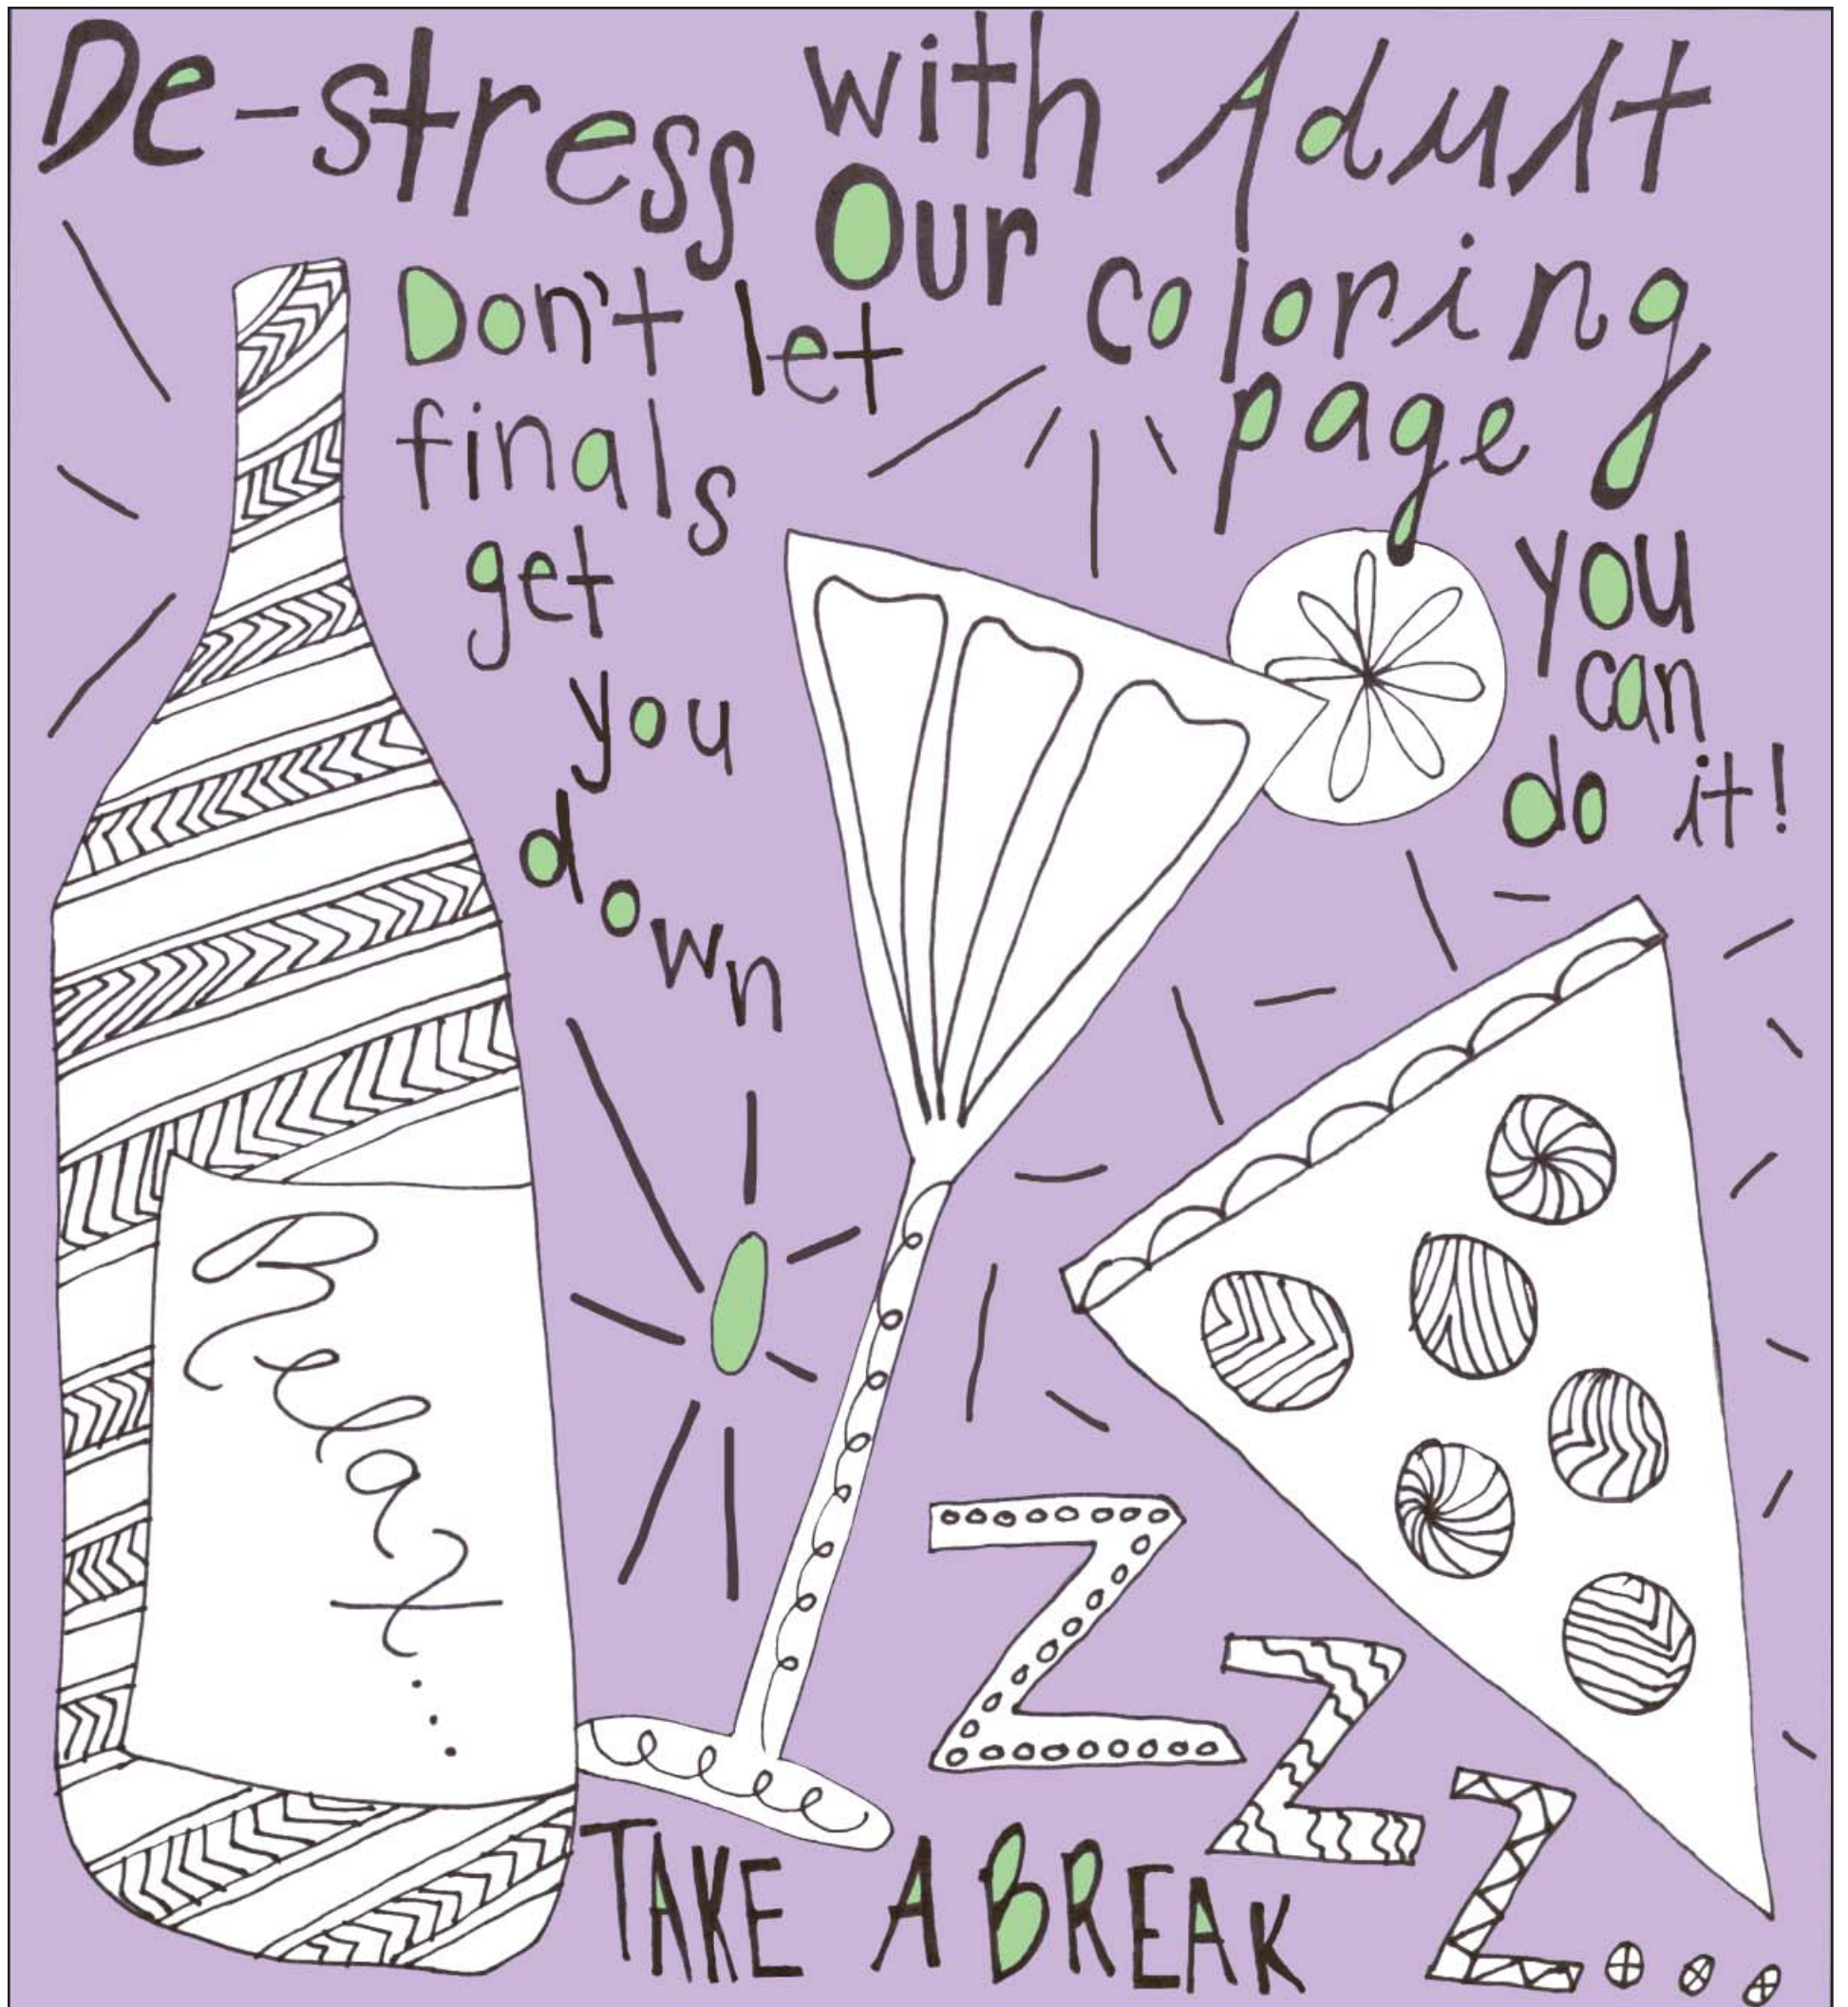 De-stress with Our Adult
coloring
page
Don't let
finals
get
you
down
you
can
do it!
Relax...
ZZZ...
TAKE A BREAK